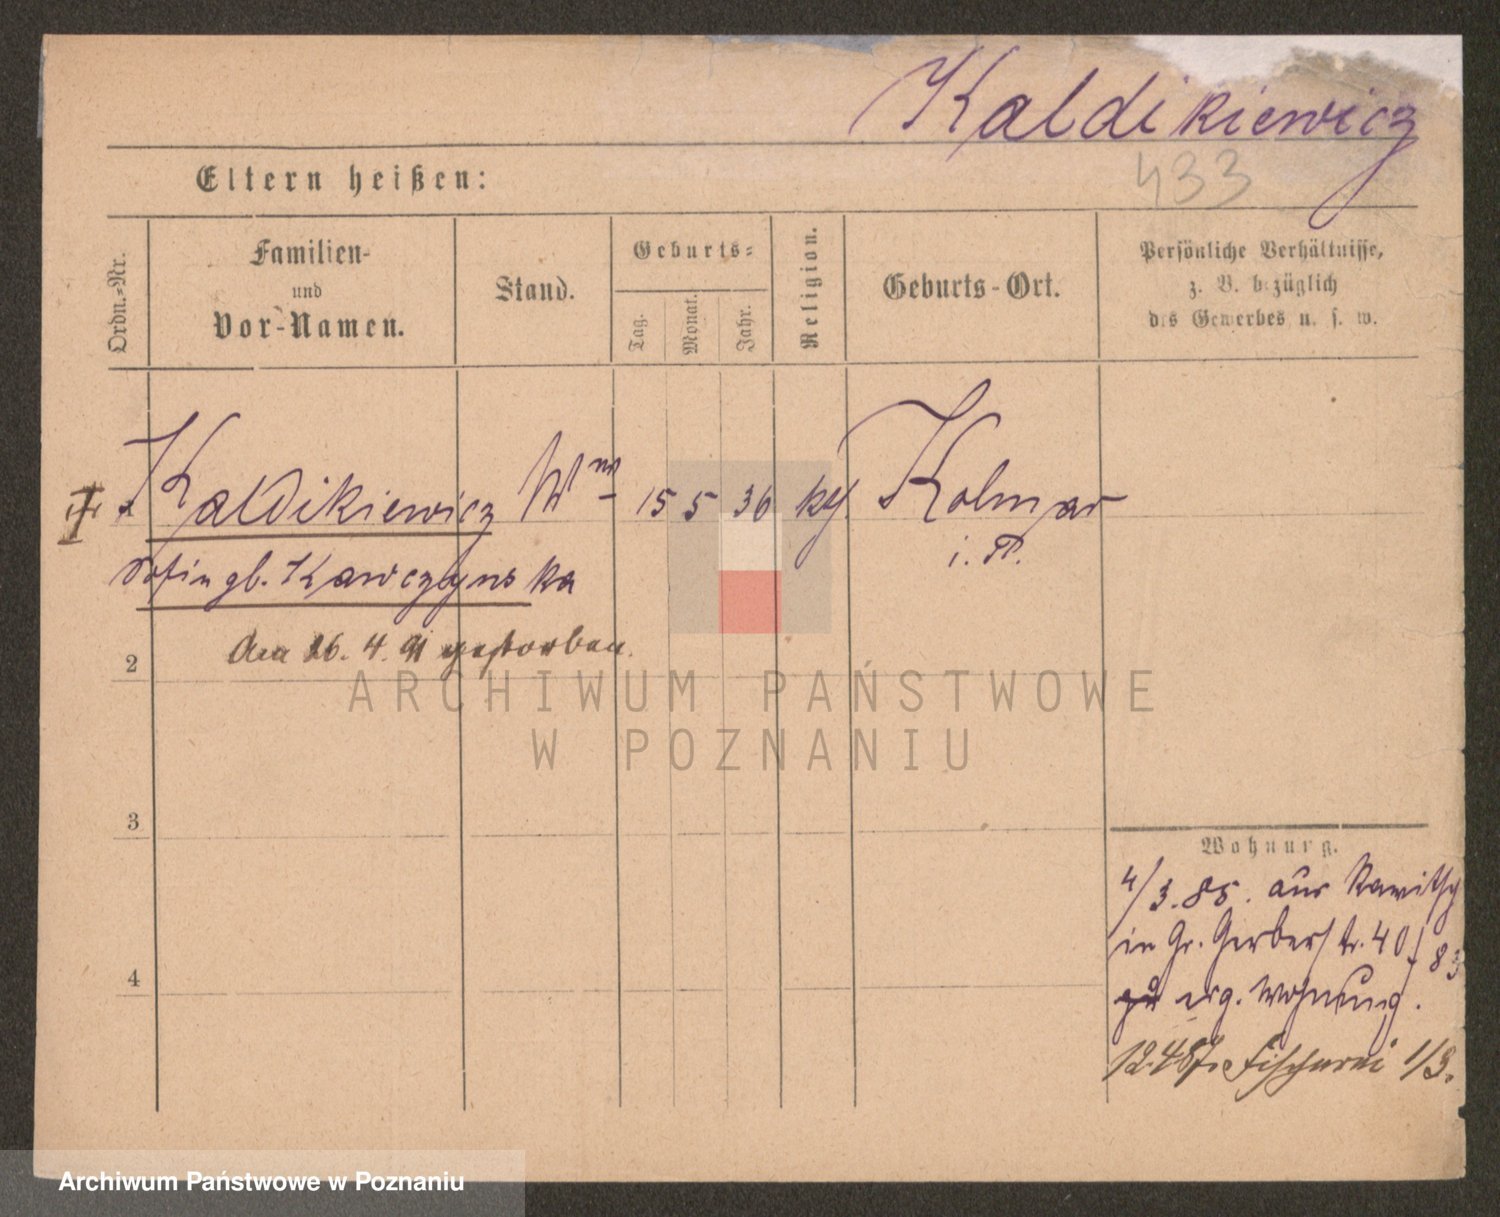 Kaldikiewicz
433
Eltern heißen:
Ordn.-Nr.
Familien- und Vor-Namen.
Stand.
Geburts-
Tag.
Monat.
Jahr.
Religion.
Geburts-Ort.
Persönliche Verhältnisse,
z. B. bezüglich
des Gewerbes u. s. w.
Kaldikiewicz Ww 15 5 36 kth. Kolmar
i. P.
Sofia gb. Kawczynska
den 26. 4. 91 gestorben.
2
3
4
Wohnung.
4/3. 85. aus Rawitsch
in Gr. Gerberstr. 40/83
Wohnung.
12.4.87. Fischerei 1/3.
ARCHIWUM PAŃSTWOWE
W POZNANIU
Archiwum Państwowe w Poznaniu